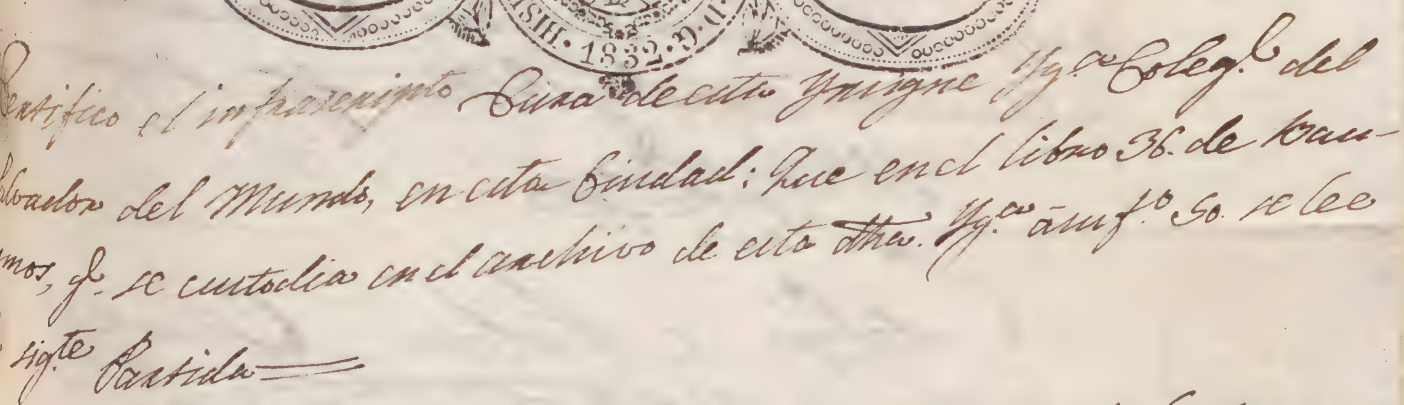 HISP · 1832 · D · G ·
Certifico el infrascripto Cura de esta Ynsigne Yg.ª Coleg.l del
Salvador del Mundo, en esta Ciudad: Que en el libro 36. de Bau-
mos, q.e se custodia en el archivo de esta dha. Yg.ª á su f.º 50. se lee
sig.te Partida